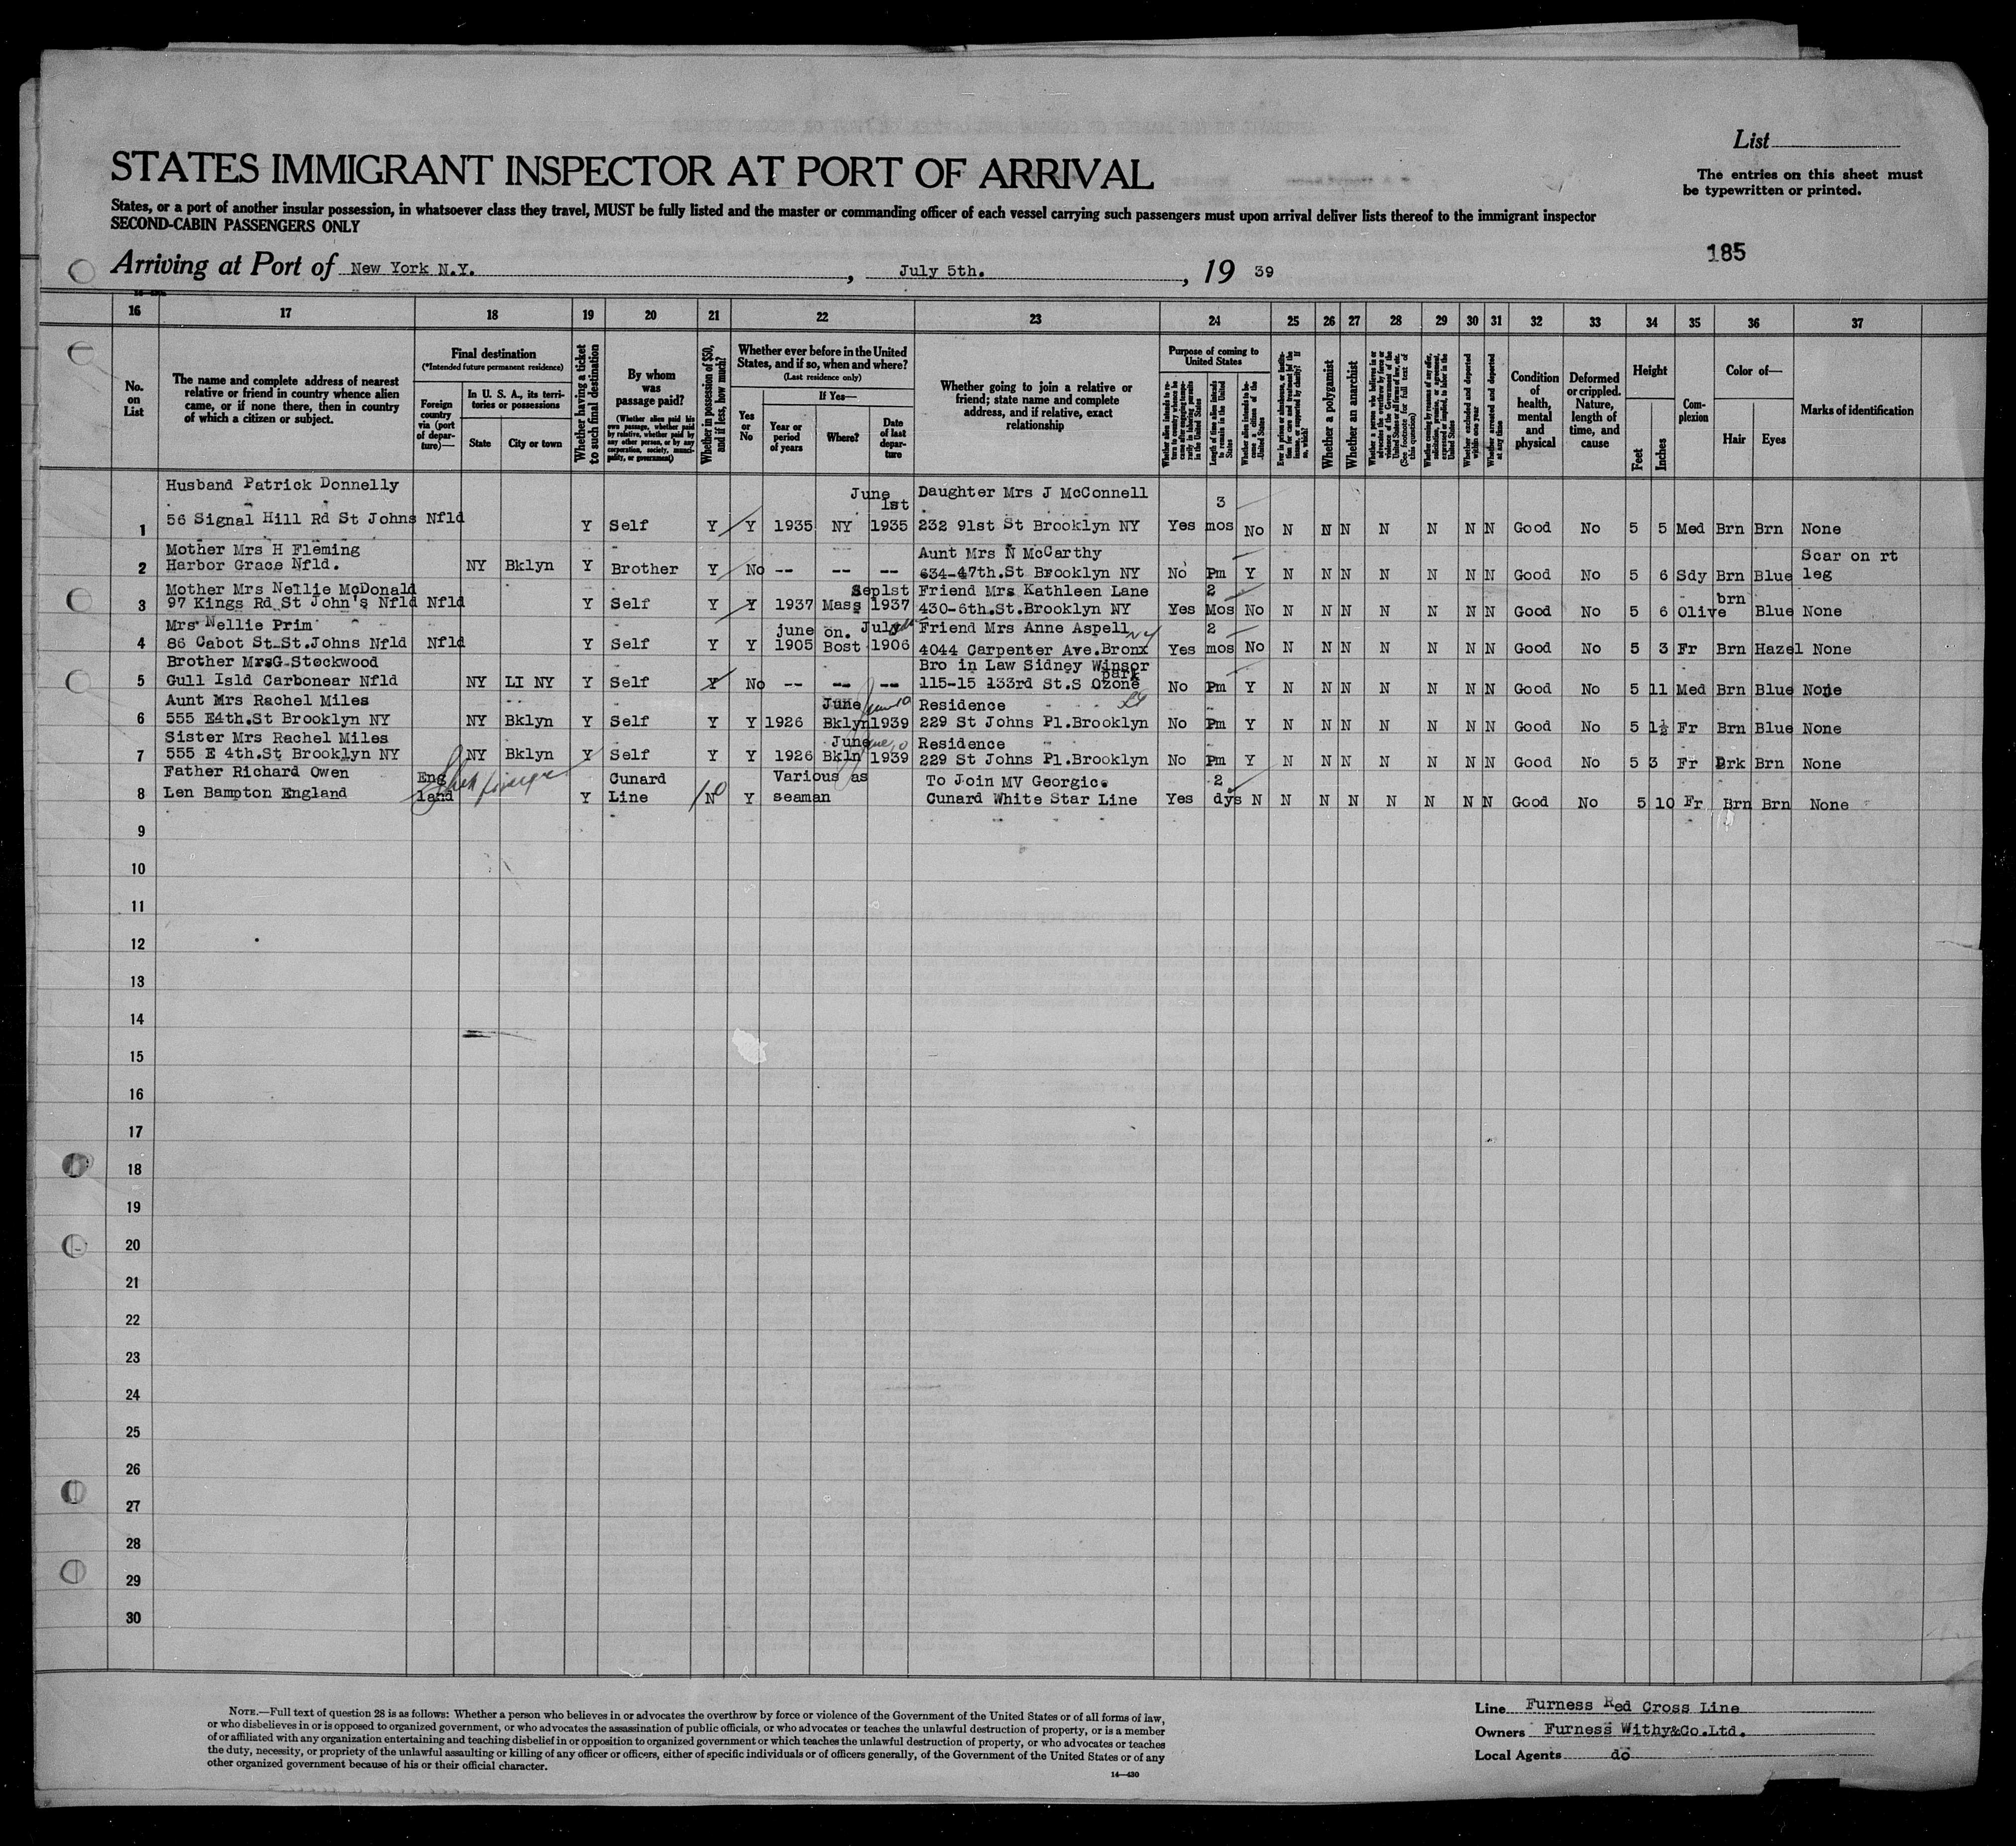 List
The entries on this sheet must
be typewritten or printed.
STATES IMMIGRANT INSPECTOR AT PORT OF ARRIVAL
States, or a port of another insular possession, in whatsoever class they travel, MUST be fully listed and the master or commanding officer of each vessel carrying such passengers must upon arrival deliver lists thereof to the immigrant inspector
SECOND-CABIN PASSENGERS ONLY
185
Arriving at Port of New York N.Y. , July 5th. , 19 39
16 17 18 19 20 21 22 23 24 25 26 27 28 29 30 31 32 33 34 35 36 37
No. on List
The name and complete address of nearest
relative or friend in country whence alien
came, or if none there, then in country
of which a citizen or subject.
Final destination
(*Intended future permanent residence)
Foreign country via (port of departure)—
In U. S. A., its territories or possessions
State
City or town
Whether having a ticket to such final destination
By whom was passage paid?
(Whether alien paid his own passage, whether paid by relative, whether paid by any other person, or by any corporation, society, municipality, or government)
Whether in possession of $50, and if less, how much?
Whether ever before in the United
States, and if so, when and where?
(Last residence only)
Yes or No
If Yes—
Year or period of years
Where?
Date of last departure
Whether going to join a relative or
friend; state name and complete
address, and if relative, exact
relationship
Purpose of coming to United States
Length of time alien intends to remain in the United States
Whether alien intends to become a citizen of the United States
Whether a polygamist
Whether an anarchist
Whether excluded and deported within one year
Whether arrested and deported at any time
Condition of health, mental and physical
Deformed or crippled. Nature, length of time, and cause
Height
Feet
Inches
Complexion
Color of—
Hair
Eyes
Marks of identification
Husband Patrick Donnelly June 1st Daughter Mrs J McConnell 3
1 56 Signal Hill Rd St Johns Nfld Y Self Y Y 1935 NY 1935 232 91st St Brooklyn NY Yes mos No N N N N N N N Good No 5 5 Med Brn Brn None
Mother Mrs H Fleming Aunt Mrs N McCarthy Scar on rt
2 Harbor Grace Nfld. NY Bklyn Y Brother Y No -- -- -- 634-47th.St Brooklyn NY No Pm Y N N N N N N N Good No 5 6 Sdy Brn Blue leg
Mother Mrs Nellie McDonald Sep1st Friend Mrs Kathleen Lane 2 brn
3 97 Kings Rd St John's Nfld Nfld Y Self Y Y 1937 Mass 1937 430-6th.St.Brooklyn NY Yes Mos No N N N N N N N Good No 5 6 Olive Blue None
Mrs Nellie Prim june on. July Friend Mrs Anne Aspell NY 2
4 86 Cabot St.St.Johns Nfld Nfld Y Self Y Y 1905 Bost 1906 4044 Carpenter Ave.Bronx Yes mos No N N N N N N N Good No 5 3 Fr Brn Hazel None
Brother MrsG Stockwood Bro in Law Sidney Winsor
5 Gull Isld Carbonear Nfld NY LI NY Y Self Y No -- -- -- 115-15 133rd St.S Ozone park No Pm Y N N N N N N N Good No 5 11 Med Brn Blue None
Aunt Mrs Rachel Miles June Residence
6 555 E4th.St Brooklyn NY NY Bklyn Y Self Y Y 1926 Bklyn 1939 229 St Johns Pl.Brooklyn No Pm Y N N N N N N N Good No 5 1½ Fr Brn Blue None
Sister Mrs Rachel Miles June Residence
7 555 E 4th.St Brooklyn NY NY Bklyn Y Self Y Y 1926 Bkln 1939 229 St Johns Pl.Brooklyn No Pm Y N N N N N N N Good No 5 3 Fr Drk Brn None
Father Richard Owen Eng Cunard Various as To Join MV Georgic. 2
8 Len Bampton England land Y Line N 10 Y seaman Cunard White Star Line Yes dys N N N N N N N N Good No 5 10 Fr Brn Brn None
9
10
11
12
13
14
15
16
17
18
19
20
21
22
23
24
25
26
27
28
29
30
NOTE.—Full text of question 28 is as follows: Whether a person who believes in or advocates the overthrow by force or violence of the Government of the United States or of all forms of law,
or who disbelieves in or is opposed to organized government, or who advocates the assassination of public officials, or who advocates or teaches the unlawful destruction of property, or is a member
of or affiliated with any organization entertaining and teaching disbelief in or opposition to organized government or which teaches the unlawful destruction of property, or who advocates or teaches
the duty, necessity, or propriety of the unlawful assaulting or killing of any officer or officers, either of specific individuals or of officers generally, of the Government of the United States or of any
other organized government because of his or their official character.
14—430
Line Furness Red Cross Line
Owners Furness Withy&Co.Ltd.
Local Agents do